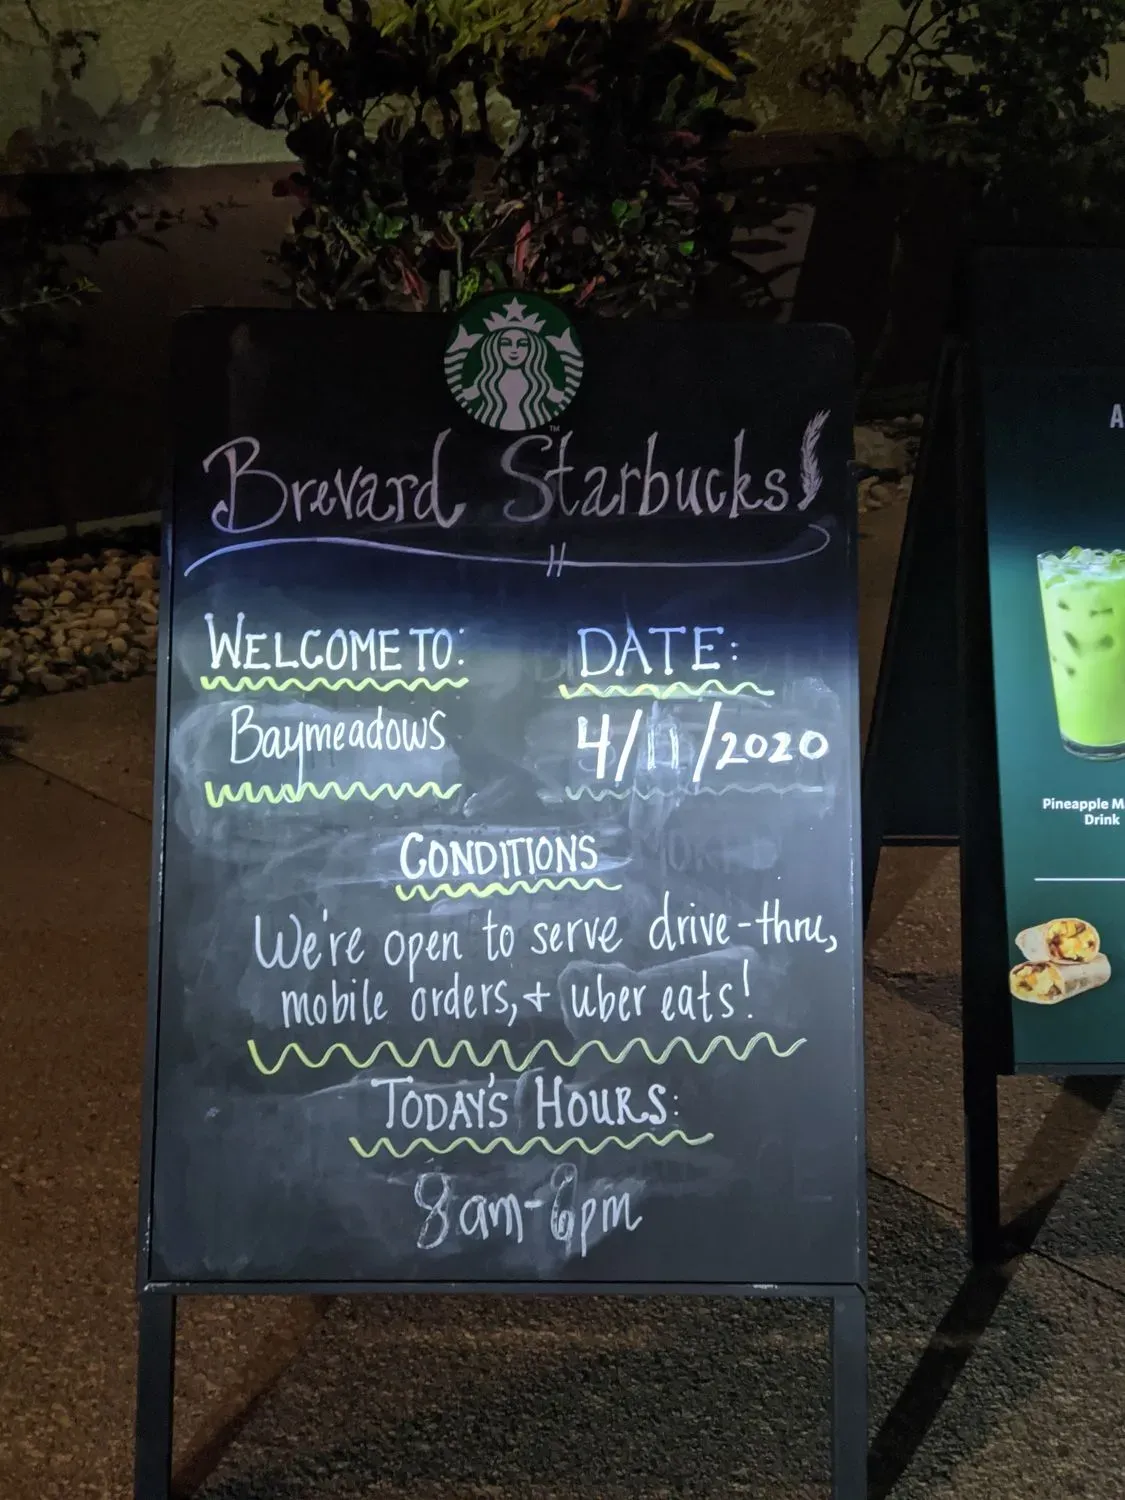 Brevard Starbucks!
WELCOME TO:
Baymeadows
DATE:
4/11/2020
CONDITIONS
We're open to serve drive-thru,
mobile orders, + uber eats!
TODAY'S HOURS:
8am-6pm
TM
A
Pineapple M
Drink